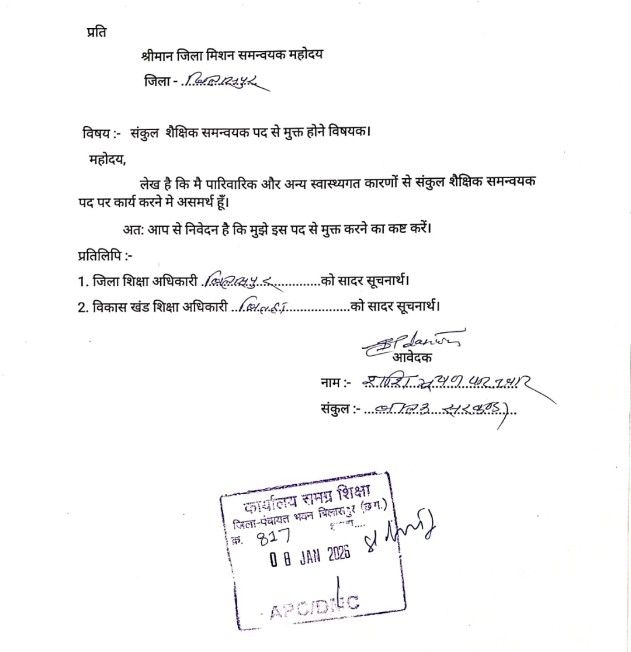 प्रति
श्रीमान जिला मिशन समन्वयक महोदय
जिला - बिलासपुर
विषय :- संकुल शैक्षिक समन्वयक पद से मुक्त होने विषयक।
महोदय,
लेख है कि मै पारिवारिक और अन्य स्वास्थ्यगत कारणों से संकुल शैक्षिक समन्वयक
पद पर कार्य करने मे असमर्थ हूँ।
अत: आप से निवेदन है कि मुझे इस पद से मुक्त करने का कष्ट करें।
प्रतिलिपि :-
1. जिला शिक्षा अधिकारी बिलासपुर को सादर सूचनार्थ।
2. विकास खंड शिक्षा अधिकारी को सादर सूचनार्थ।
आवेदक
नाम :-
संकुल :-
कार्यालय समग्र शिक्षा
जिला-पंचायत भवन बिलासपुर (छ.ग.)
क्र. 817
08 JAN 2026
APC/DMC